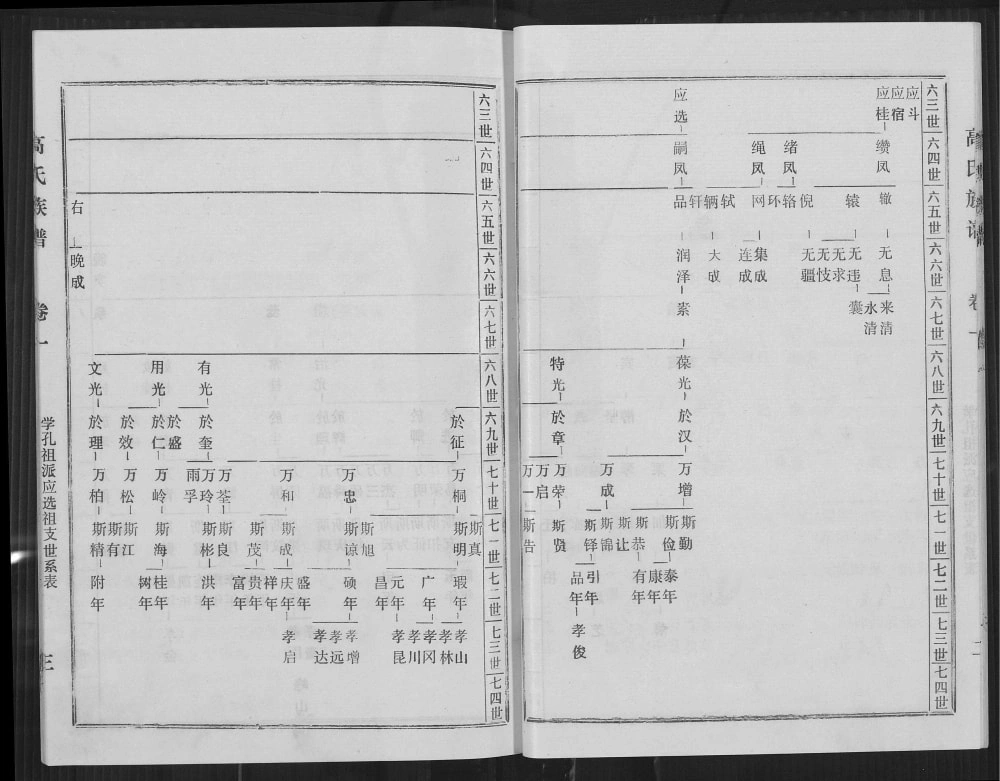 高氏族谱 卷一
六三世 六四世 六五世 六六世 六七世 六八世 六九世 七十世 七一世 七二世 七三世 七四世
应斗 应宿 应桂 应选
缵凤 绪凤 绳凤 嗣凤
辙 辕 倪 辂 环 网 轼 辆 轩 品
无息 无违 无求 无忮 无疆 集成 连成 大成 润泽
来清 永清 囊 素
葆光 特光
於汉 於章
万增 万成 万荣 万启 万一
斯勤 斯俭 斯恭 斯让 斯锦 斯铎 斯贤 斯告
泰年 康年 有年 引年 品年
孝俊
二
六三世 六四世 六五世 六六世 六七世 六八世 六九世 七十世 七一世 七二世 七三世 七四世
右
晚成
有光 用光 文光
於征 於奎 於盛 於仁 於效 於理
万桐 万忠 万和 万荃 万玲 雨孚 万岭 万松 万柏
斯真 斯明 斯旭 斯谅 斯成 斯茂 斯良 斯彬 斯海 斯江 斯有 斯精
瑕年 广年 元年 昌年 硕年 盛年 庆年 祥年 贵年 富年 洪年 桂年 树年 附年
孝山 孝林 孝冈 孝川 孝昆 孝增 孝远 孝达 孝启
高氏族谱 卷一
学孔祖派应选祖支世系表
三